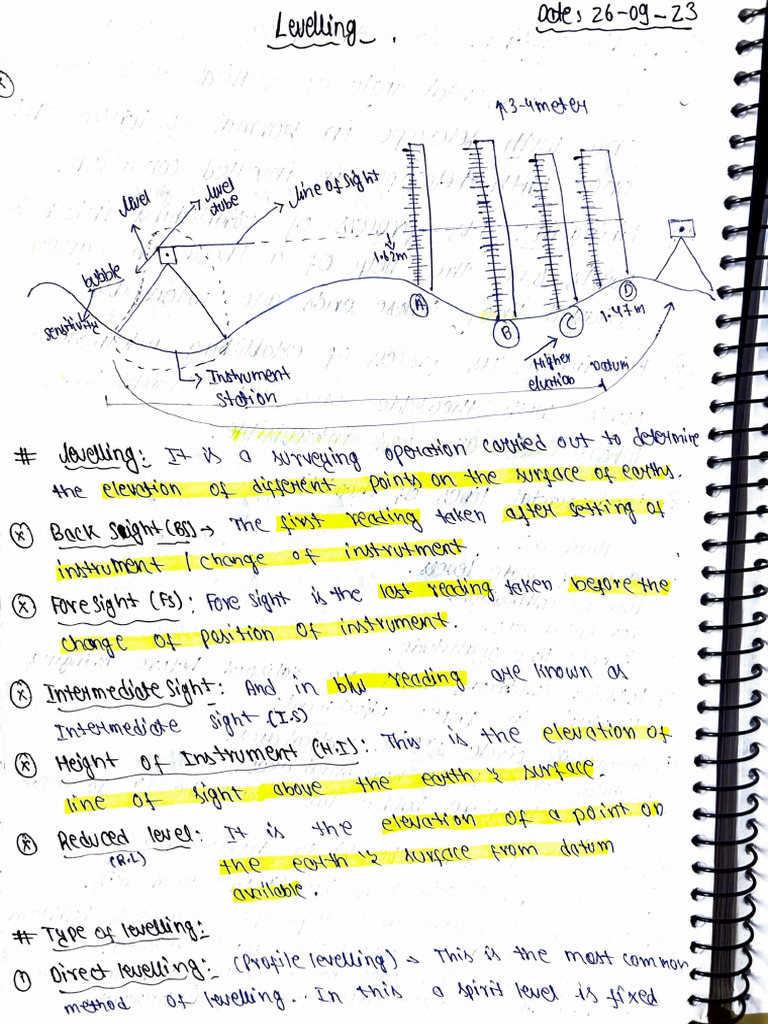 Levelling.
Date: 26-09-23
3-4 meter
level
level tube
line of sight
bubble
sensitivity
1.62m
A
B
C
D
1.47m
Higher
Datum
Instrument
station
# Levelling: It is a surveying operation carried out to determine
the elevation of different points on the surface of earths.
Back Sight (BS) → The first reading taken after setting of
instrument / change of instrutment.
Fore sight (FS): Fore sight is the last reading taken before the
change of position of instrument.
Intermediate Sight: And in b/w reading are known as
Intermediate sight (I.S)
Height of Instrument (H.I): This is the elevation of
line of sight above the earth's surface.
Reduced level: It is the elevation of a point on
(R.L)
the earth's surface from datum
available.
# Type of levelling:
① Direct levelling: (Profile levelling) → This is the most common
method of levelling. In this a spirit level is fixed